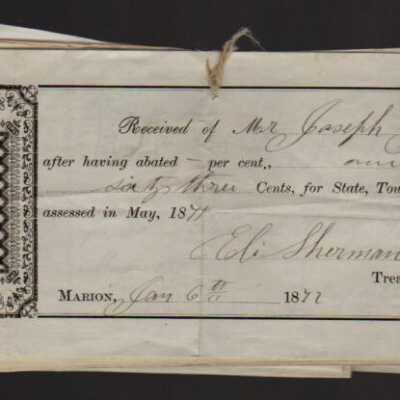 Received of Mr Joseph
after having abated — per cent.,
sixty three Cents, for State, Tow
assessed in May, 1871
Eli Sherman
Trea
MARION, Jan 6th 1872